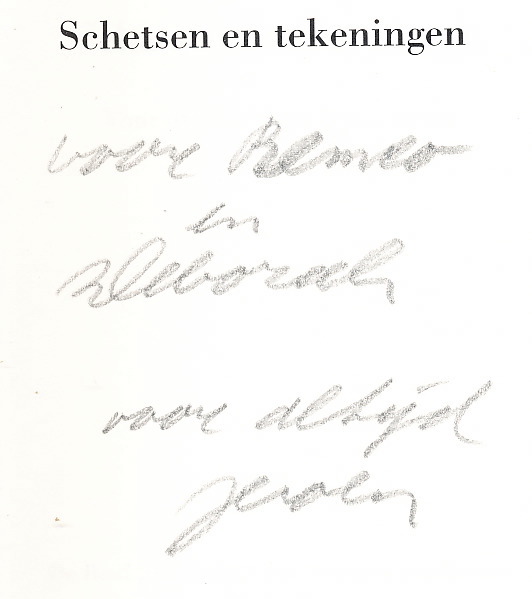 Schetsen en tekeningen
voor Remco
en
Deborah
voor altijd
Jeroen